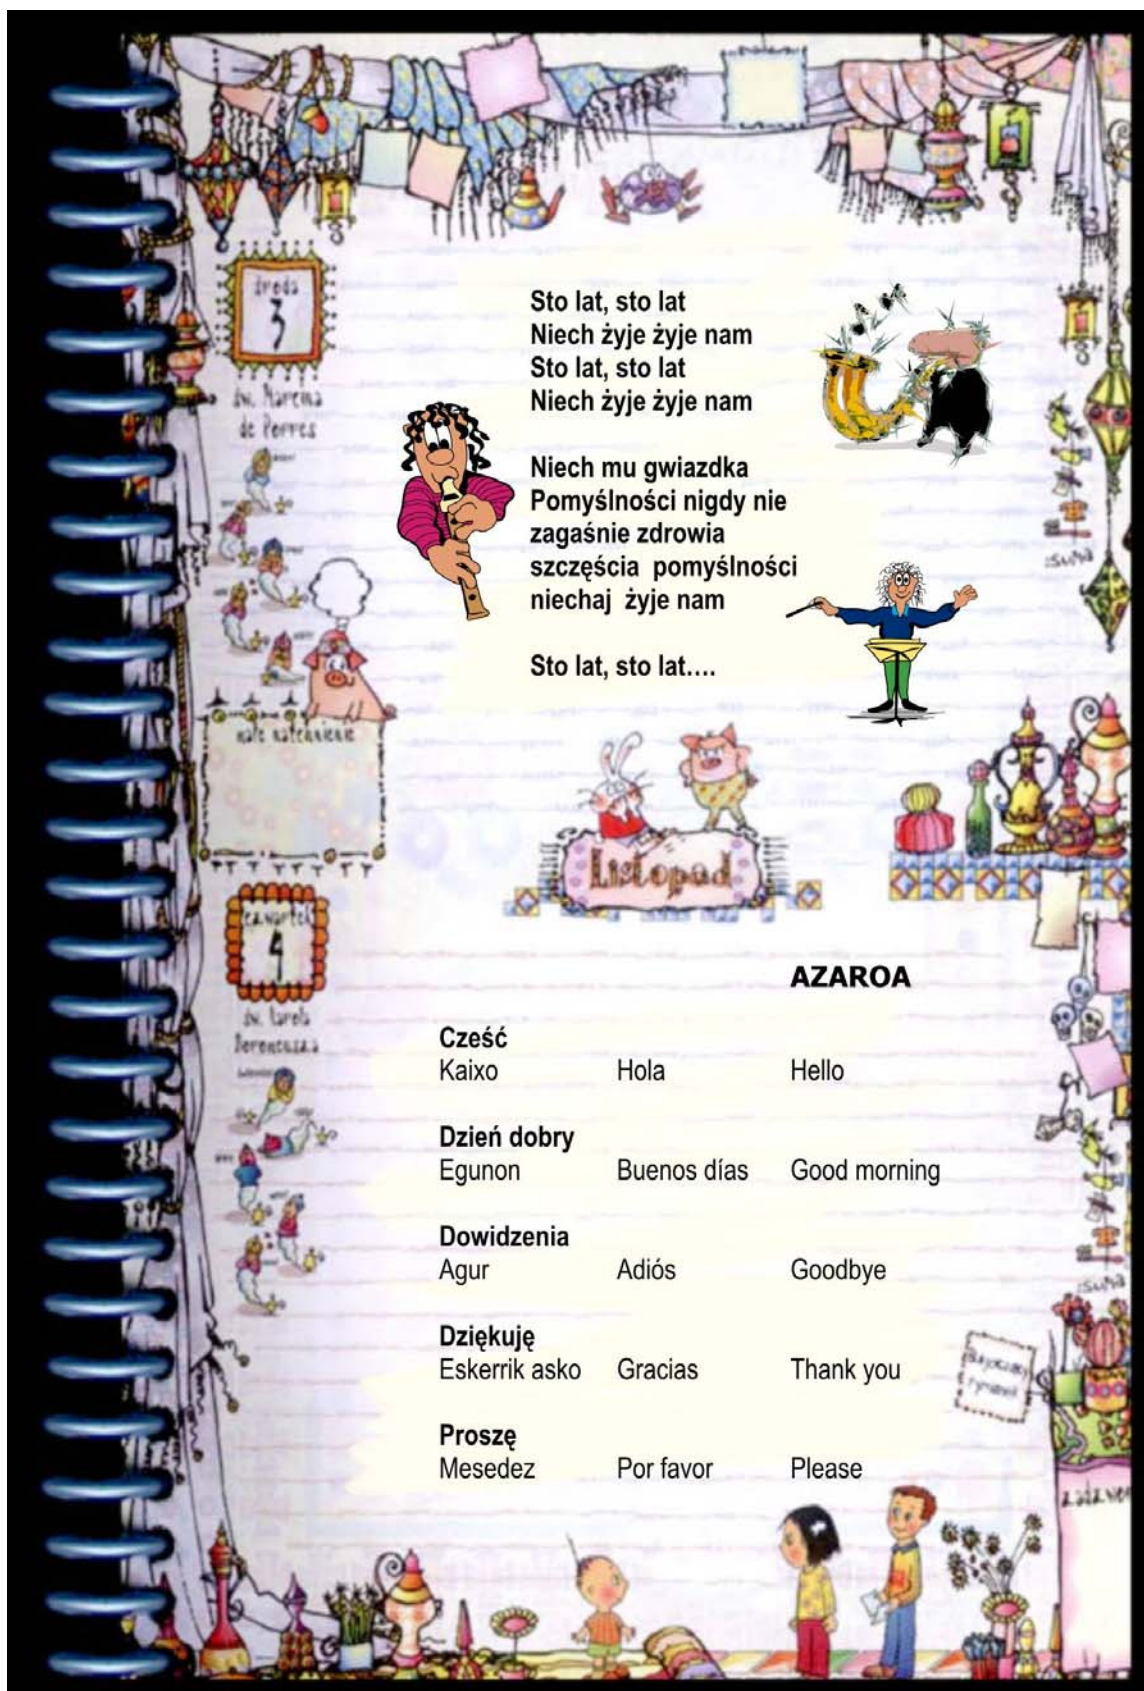 środa
3
św. Marcina
de Porres
Sto lat, sto lat
Niech żyje żyje nam
Sto lat, sto lat
Niech żyje żyje nam
Niech mu gwiazdka
Pomyślności nigdy nie
zagaśnie zdrowia
szczęścia pomyślności
niechaj żyje nam
Sto lat, sto lat….
Listopad
czwartek
4
św. Karola
AZAROA
Cześć
Kaixo Hola Hello
Dzień dobry
Egunon Buenos días Good morning
Dowidzenia
Agur Adiós Goodbye
Dziękuję
Eskerrik asko Gracias Thank you
Proszę
Mesedez Por favor Please